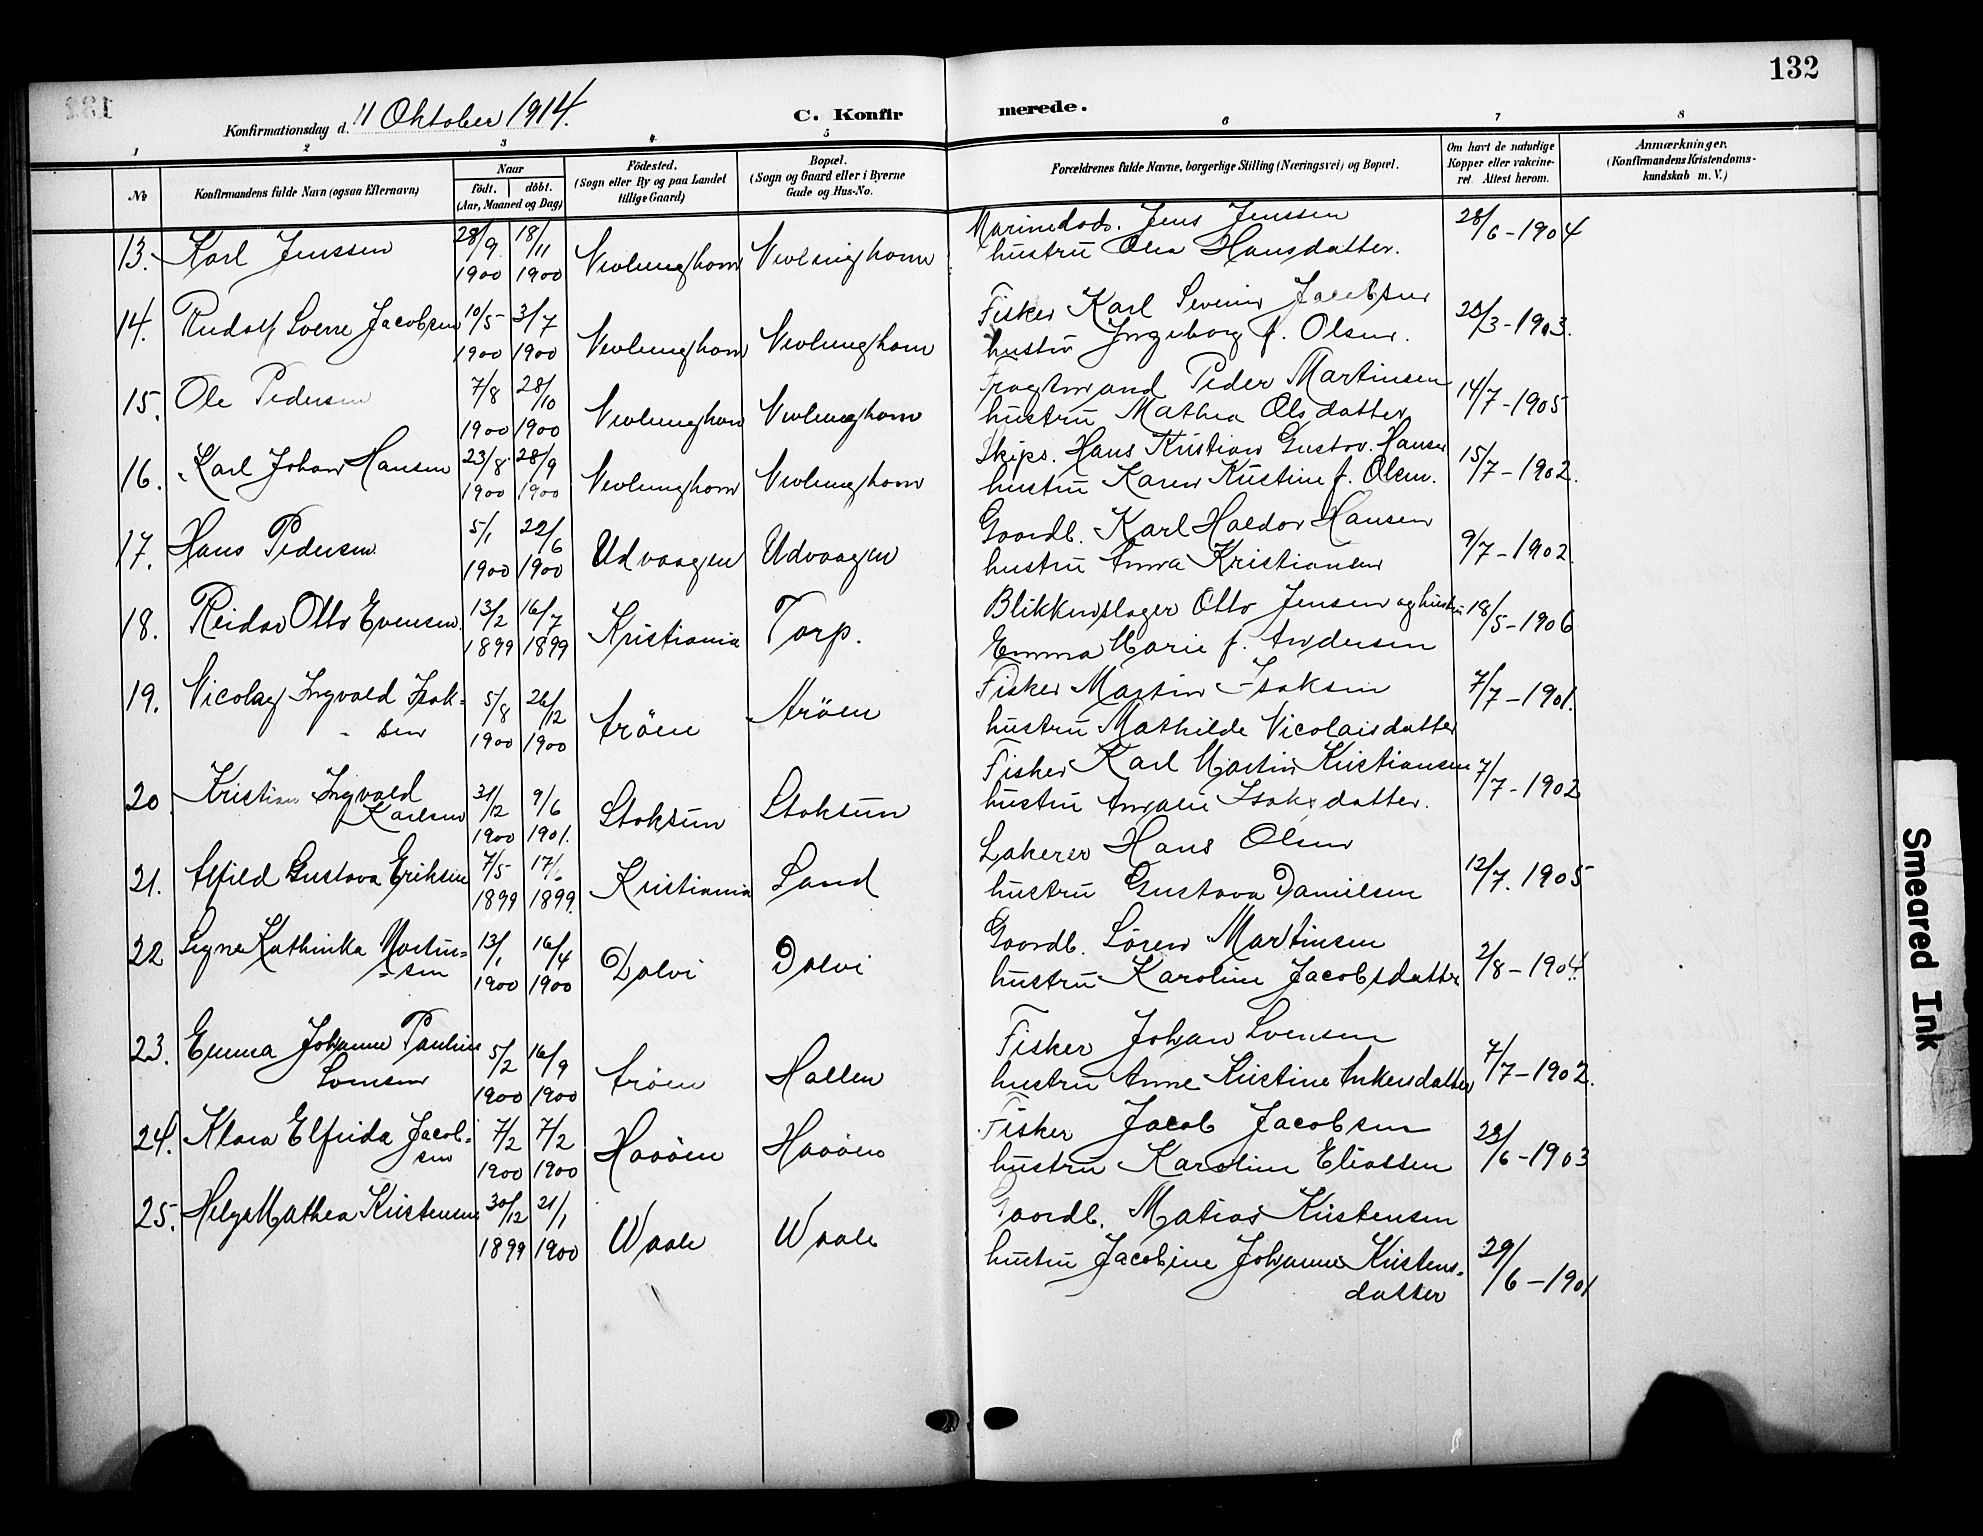 132
Konfirmationsdag d. 11 Oktober 1914.
C. Konfirmerede.
1 2 3 4 5 6 7 8
No
Konfirmandens fulde Navn (ogsaa Efternavn)
Naar
födt. döbt.
(Aar, Maaned og Dag)
Födested.
(Sogn eller By og paa Landet
tillige Gaard)
Bopæl.
(Sogn og Gaard eller i Byerne
Gade og Hus-No.
Forældrenes fulde Navne, borgerlige Stilling (Næringsvei) og Bopæl.
Om havt de naturlige
Kopper eller vakcine-
ret. Attest herom.
Anmærkninger.
(Konfirmandens Kristendoms-
kundskab m. V.)
13. Karl Jenssen 28/9 1900 18/11 1900 Nevlunghavn Nevlunghavn
Jens Jenssen
hustru Olea Hansdatter. 28/6-1904
14. Rudolf Sverre Jacobsen 10/5 1900 3/7 1900 Nevlunghavn Nevlunghavn
Fisker Karl Severin Jacobsen
hustru Ingeborg f. Olsen. 28/3-1903.
15. Ole Pedersen 7/8 1900 28/10 1900 Nevlunghavn Nevlunghavn
Fragtmand Peder Martinsen
hustru Mathea Olsdatter 14/7-1905
16. Karl Johan Hansen 23/8 1900 28/9 1900 Nevlunghavn Nevlunghavn
Skips. Hans Kristian Gustav. Hansen
hustru Karen Kristine f. Olsen. 15/7-1902.
17. Hans Pedersen 5/1 1900 22/6 1900 Udvaagen Udvaagen
Gaardb. Karl Haldor Hansen
hustru Anna Kristiansen 9/7-1902.
18. Reidar Otto Evensen. 13/2 1899 16/7 1899 Kristiania Torp.
Blikkenslager Otto Jensen og hustru
Emma Marie f. Andersen 18/5-1906
19. Nicolay Ingvald Isak-
sen 5/8 1900 26/12 1900 Aröen Aröen
Fisker Martin Isaksen
hustru Mathilde Nicolaisdatter 7/7-1901.
20 Kristian Ingvald
Karlsen 31/12 1900 9/6 1901. Stoksun Stoksun
Fisker Karl Martin Kristiansen
hustru Amalie Isaksdatter. 7/7-1902
21. Alfild Gustava Eriksen 7/5 1899 17/6 1899. Kristiania Sand
Lakerer Hans Olsen
hustru Gustava Danielsen 12/7.1905
22 Signe Kathinka Martin=
=sen 13/1 1900 16/4 1900 Dalvi Dalvi
Gaardb. Sören Martinsen
hustru Karoline Jacobsdatter 2/8-1904.
23. Emma Johanne Pauline
Svensen 5/2 1900 16/9 1900 Aröen Hallen
Fisker Johan Svensen
hustru Anne Kristine Ankersdatter 7/7-1902.
24. Klara Elfrida Jacob-
sen 7/2 1900 7/2 1900 Haaöen Haaöen
Fisker Jacob Jacobsen
hustru Karoline Eliassen 23/6-1903
25. Helga Mathea Kristensen 30/12 1899 21/1 1900 Waale Waale
Gaardb. Matias Kristensen
hustru Jacobine Johanne Kristens-
datter 29/6-1901
Smeared Ink